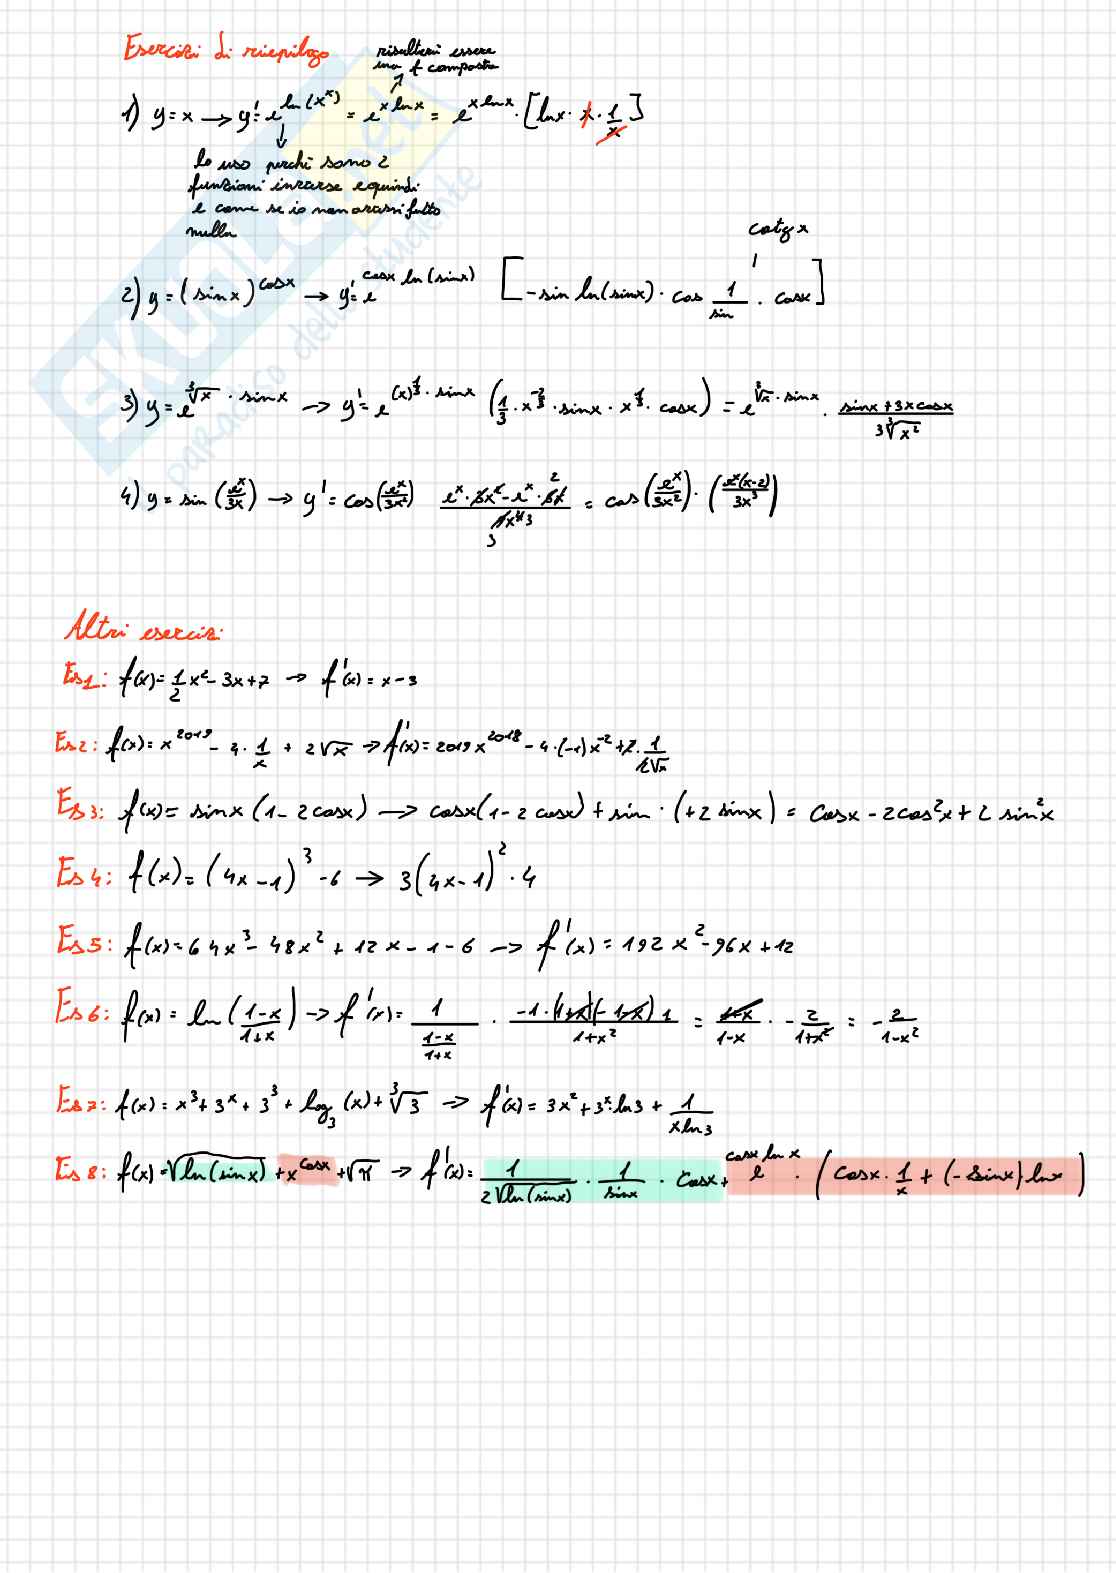 Esercizi di riepilogo
risulterà essere
una f composta
1) y = x → y' = e^{ln(x^x)} = e^{x ln x} = e^{x ln x} · [ln x · x · 1/x]
lo uso perchè sono 2
funzioni inverse e quindi
è come se io non avessi fatto
nulla
cotg x
2) y = (sin x)^{cos x} → y' = e^{cos x ln(sin x)} [-sin ln(sin x) · cos 1/sin · cos x]
3) y = e^{∛x · sin x} → y' = e^{(x)^{1/3} · sin x} (1/3 · x^{-2/3} · sin x · x^{1/3} · cos x) = e^{∛x · sin x} · (sin x + 3x cos x)/(3∛x²)
4) y = sin(e^x/3x) → y' = cos(e^x/3x²) (e^x · 3x² - e^x · 6x 2)/(9x⁴ 3) 3 = cos(e^x/3x²) · (e^x(x-2)/3x³)
Altri esercizi:
Es1: f(x) = 1/2 x² - 3x + 7 → f'(x) = x - 3
Es2: f(x) = x^{2019} - 4 · 1/x + 2√x → f'(x) = 2019x^{2018} - 4 · (-1)x^{-2} + 2 · 1/(2√x)
Es3: f(x) = sin x (1 - 2 cos x) → cos x (1 - 2 cos x) + sin · (+2 sin x) = cos x - 2cos²x + 2 sin²x
Es4: f(x) = (4x - 1)³ - 6 → 3(4x - 1)² · 4
Es5: f(x) = 64x³ - 48x² + 12x - 1 - 6 → f'(x) = 192x² - 96x + 12
Es6: f(x) = ln((1-x)/(1+x)) → f'(x) = 1/((1-x)/(1+x)) · (-1 · (1+x)(-1-x) 1)/(1+x²) = (1+x)/(1-x) · - 2/(1+x²) = - 2/(1-x²)
Es7: f(x) = x³ + 3^x + 3³ + log₃(x) + ∛3 → f'(x) = 3x² + 3^x · ln 3 + 1/(x ln 3)
Es8: f(x) = √(ln(sin x)) + x^{cos x} + √π → f'(x) = 1/(2√(ln(sin x))) · 1/sin x · cos x + e^{cos x ln x} · (cos x · 1/x + (-sin x) ln x)
SKUOLA.net
paradiso dello studente